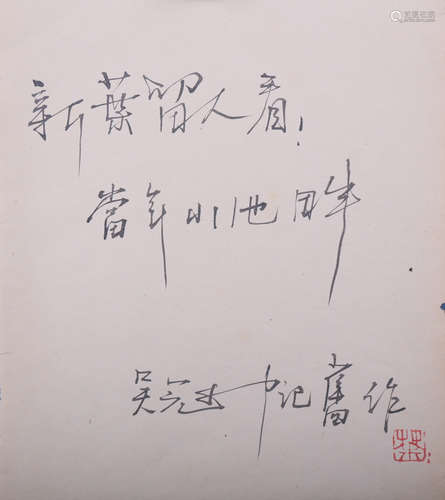 新葉留人看！
當年小池畔
吴冠中記舊作